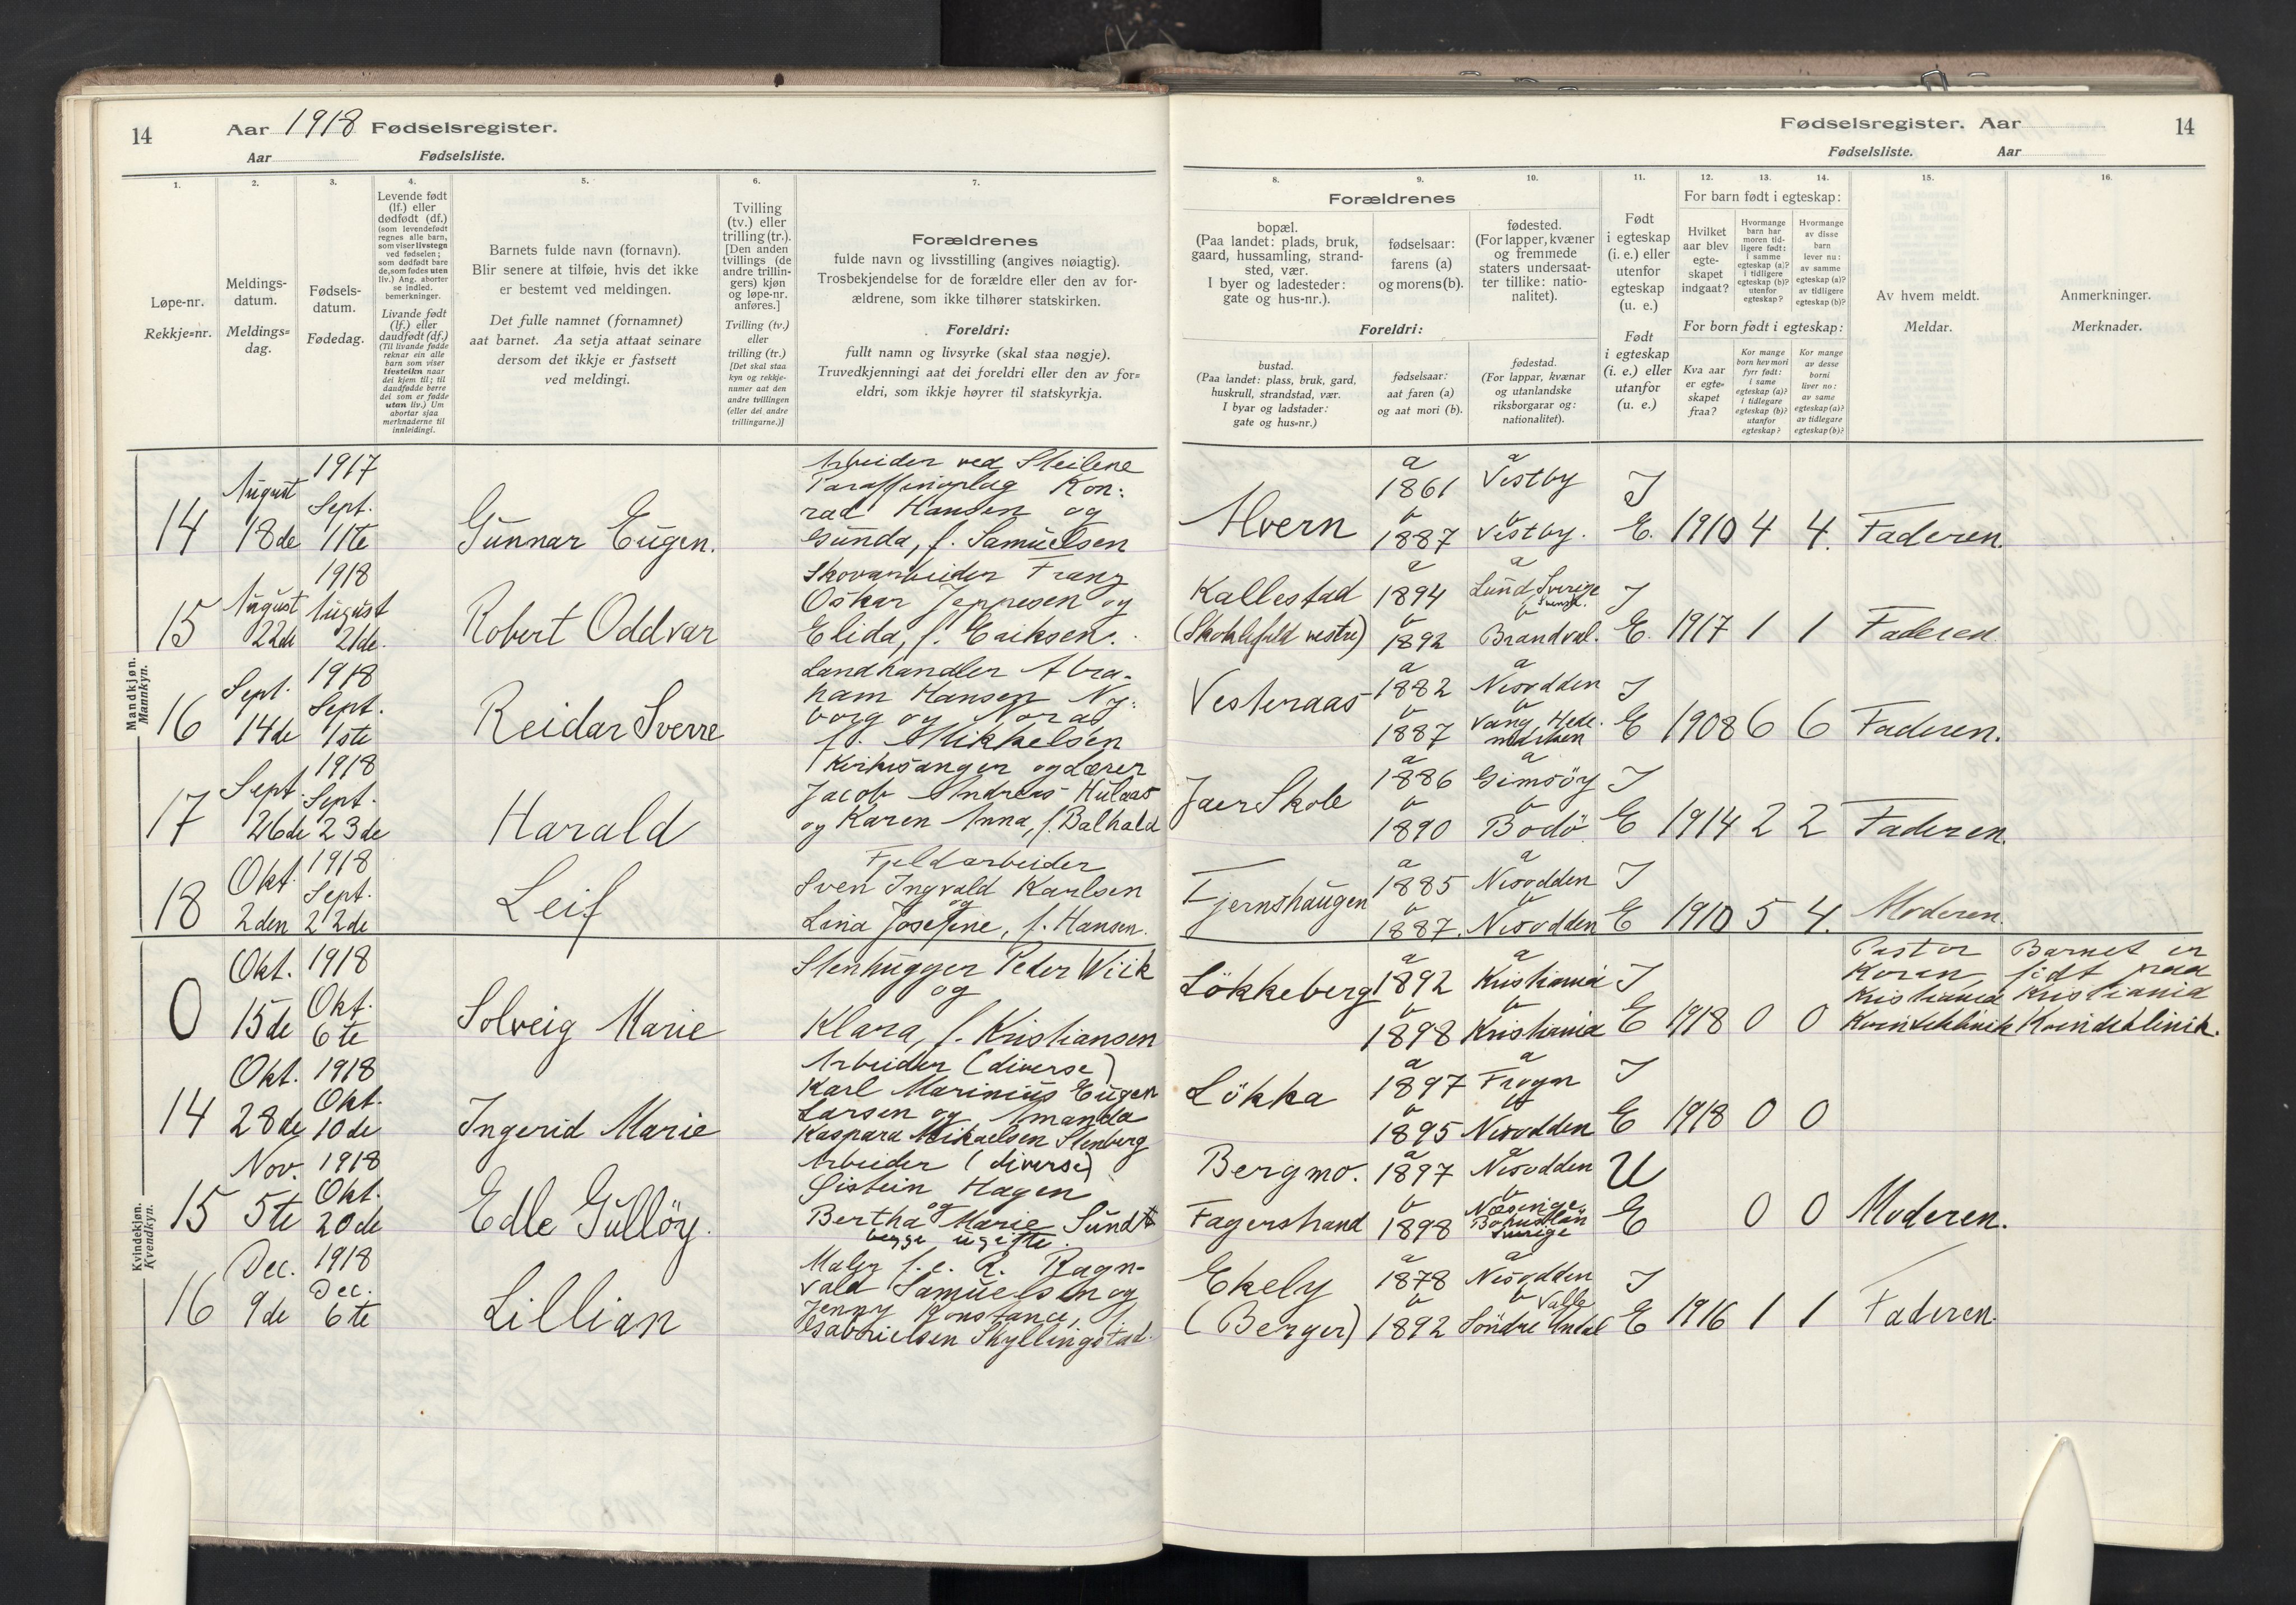 14
Aar 1918 Fødselsregister.
Aar Fødselsliste.
1. 2. 3. 4. 5. 6. 7.
Løpe-nr.
Rekkje=nr.
Meldings-
datum.
Meldings=
dag.
Fødsels-
datum.
Fødedag.
Levende født
(lf.) eller
dødfødt (df.)
(som levendefødt
regnes alle barn,
som viser livstegn
ved fødselen;
som dødfødt bare
de, som fødes uten
liv.) Ang. aborter
se indled.
bemerkninger.
Livande født
(lf.) eller
daudfødt (df.)
(Til livande fødde
reknar ein alle
barn som viser
livsteikn naar
dei kjem til; til
daudfødde berre
dei som er fødde
utan liv.) Um
abortar sjaa
merknaderne til
innleidingi.
Barnets fulde navn (fornavn).
Blir senere at tilføie, hvis det ikke
er bestemt ved meldingen.
Det fulle namnet (fornamnet)
aat barnet. Aa setja attaat seinare
dersom det ikkje er fastsett
ved meldingi.
Tvilling
(tv.) eller
trilling (tr.).
[Den anden
tvillings (de
andre trillin-
gers) kjøn
og løpe-nr.
anføres.]
Tvilling (tv.)
eller
trilling (tr.)
[Det skal staa
kyn og rekkje-
numer aat den
andre tvillingen
(eller dei andre
trillingarne.)]
Forældrenes
fulde navn og livsstilling (angives nøiagtig).
Trosbekjendelse for de forældre eller den av for-
ældrene, som ikke tilhører statskirken.
Foreldri:
fullt namn og livsyrke (skal staa nøgje).
Truvedkjenningi aat dei foreldri eller den av for=
eldri, som ikkje høyrer til statskyrkja.
Mandkjøn.
Mannkyn.
14
August
18de
1917
Sept.
11te
Gunnar Eugen.
Arbeider ved Steilene
Paraffinoplag Kon:
rad Hansen og
Gunda, f. Samuelsen
15
August
22de
1918
August
21de.
Robert Oddvar
Skovarbeider Franz
Oskar Jeppesen og
Elida, f. Eriksen.
16
Sept.
14de
1918
Sept.
1ste
Reidar Sverre
Landhandler Abra-
ham Hansen Ny:
borg og Nora,
f. Mikkelsen
17
Sept.
26de
1918
Sept.
23de
Harald
Kirkesanger og Lærer
Jacob Andreas Hulaas
og Karen Anna, f. Dalhald
18
Okt.
2den
1918
Sept.
22de
Leif
Fjeldarbeider
Sven Ingvald Karlsen
og
Lina Josefine, f. Hansen.
Kvindekjøn.
Kvendkyn.
0
Okt.
15de
1918
Okt.
6te
Solveig Marie
Stenhugger Peder Wiik
og
Klara, f. Kristiansen
14
Okt.
28de
1918
Okt.
10de
Ingerid Marie
Arbeider (diverse)
Karl Marinius Eugen
Larsen og Amanda
Kaspara Mikaelsen Stenberg
15
Nov.
5te
1918
Okt.
20de
Edle Gullöy.
Arbeider (diverse)
Öistein Hagen
og
Bertha Marie Sundt
begge ugifte.
16
Dec.
9de
1918
Dec.
6te
Lillian
Maler f.e. R. Ragn-
vald Samuelsen og
Jenny Konstance, f.
Gabrielsen Skyllingstad.
Fødselsregister. Aar
14
Fødselsliste. Aar
8. 9. 10. 11. 12. 13. 14. 15. 16.
Forældrenes
bopæl.
(Paa landet: plads, bruk,
gaard, hussamling, strand-
sted, vær.
I byer og ladesteder:
gate og hus-nr.).
fødselsaar:
farens (a)
og morens (b).
fødested.
(For lapper, kvæner
og fremmede
staters undersaat-
ter tillike: natio-
nalitet).
Foreldri:
bustad.
(Paa landet: plass, bruk, gard,
huskrull, strandstad, vær.
I byar og ladstader:
gate og hus=nr.)
fødselsaar:
aat faren (a)
og aat mori (b).
fødestad.
(For lappar, kvænar
og utanlandske
riksborgarar og:
nationalitet).
Født
i egteskap
(i. e.) eller
utenfor
egteskap
(u. e.)
Født
i egteskap
(i. e.) eller
utanfor
(u. e.)
For barn født i egteskap:
Hvilket
aar blev
egte-
skapet
indgaat?
Hvormange
barn har
moren tid-
ligere født:
i samme
egteskap (a)?
i tidligere
egteskap (b)?
utenfor
egteskap?
Hvormange
av disse
barn
lever nu:
av samme
egteskap (a)?
av tidligere
egteskap (b)?
For born født i egteskap:
Kva aar
er egte=
skapet
fraa?
Kor mange
born hev mori
fyrr født:
i same
egteskap (a)?
i tidlegare
egteskap (b)?
utanfor
egteskap?
Kor mange
av desse
borni
liver no:
av same
egteskap (a)?
av tidlegare
egteskap (b)?
Av hvem meldt.
Meldar.
Anmerkninger.
Merknader.
Alvern
a
1861
b
1887
a
Vestby
b
Vestby.
I
E.
1910 4 4. Faderen.
Kallestad
(Skoklefald vestre)
a
1894
b
1892
a
Lund, Sverige
Svensk.
b
Brandval.
I
E.
1917 1 1 Faderen
Vesteraas
a
1882
b
1887
a
Nesodden
b
Vang, Hede-
marken
I
E
1908 6 6 Faderen.
Jaer Skole
a
1886
b
1890
a
Gimsöy
b
Bodö
I
E
1914 2 2 Faderen.
Fjernshaugen
a
1885
b
1887.
a
Nesodden
b
Nesodden
I
E
1910 5 4. Moderen.
Lökkeberg
a
1892
b
1898
a
Kristiania
b
Kristiania
I
E
1918 0 0
Pastor
Koren,
Kristiania
Kvindeklinik
Barnet er
födt paa
Kristiania
Kvindeklinik.
Lökka
a
1897
b
1895
a
Frogn
b
Nesodden
I
E
1918 0 0
Bergmo.
Fagerstrand
a
1897
b
1898
a
Nesodden
b
Næsinge
Bohuslän
Sverige
U
E
0 0 Moderen.
Ekely
(Berger)
a
1878
b
1892
a
Nesodden
b Valle
Söndre Undal
I
E
1916 1 1 Faderen.